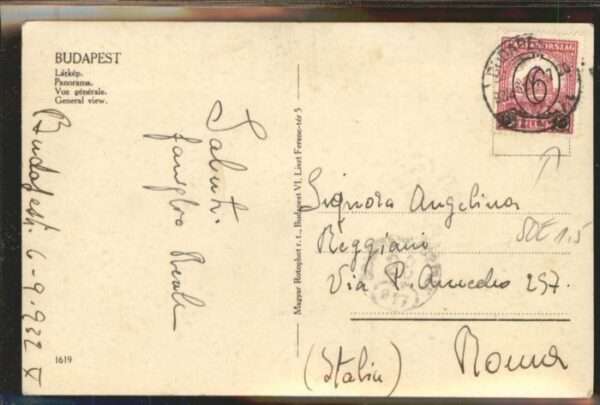 BUDAPEST
Látkép.
Panorama.
Vue générale.
General view.
Budapest. 6-9-932 X
Saluti.
1619
Magyar Rotophot r. t., Budapest VI. Liszt Ferenc-tér 5
6
Signora Angelina
Reggiani
Via P. Amedeo 257.
Roma
(Italia)